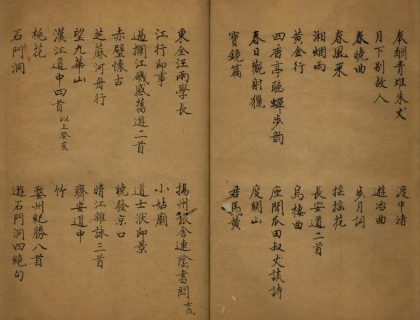 奉酬青堆朱丈
渡中清
月下別故人
遊冶曲
春晚曲
步月詞
春風來
搖搖花
湘烟雨
長安道二首
黃金行
烏棲曲
四香亭聽蟬步韵
座間瓜田叔丈談詩
春日觀射獵
度關山
寶鏡篇
君馬黃
東全汪兩學長
揚州旅舍連陰書悶
江行即事
小姑廟
過攔江磯感舊遊二首
道士洑即景
赤壁懷古
曉發京口
芝麻河舟行
晴江雜詠三首
望九華山
齊安道中
漢江道中四首以上癸亥
竹
桃花
婺州紀勝八首
石門洞
遊石門洞四絕句